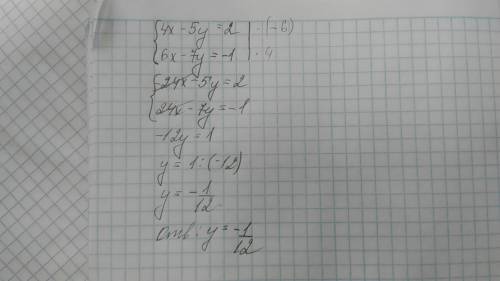 4x - 5y = 2 | · (-6)
6x - 7y = -1 | · 4
-24x - 5y = 2
24x - 7y = -1
-12y = 1
y = 1 : (-12)
y = -1/12
Отв: y = -1/12